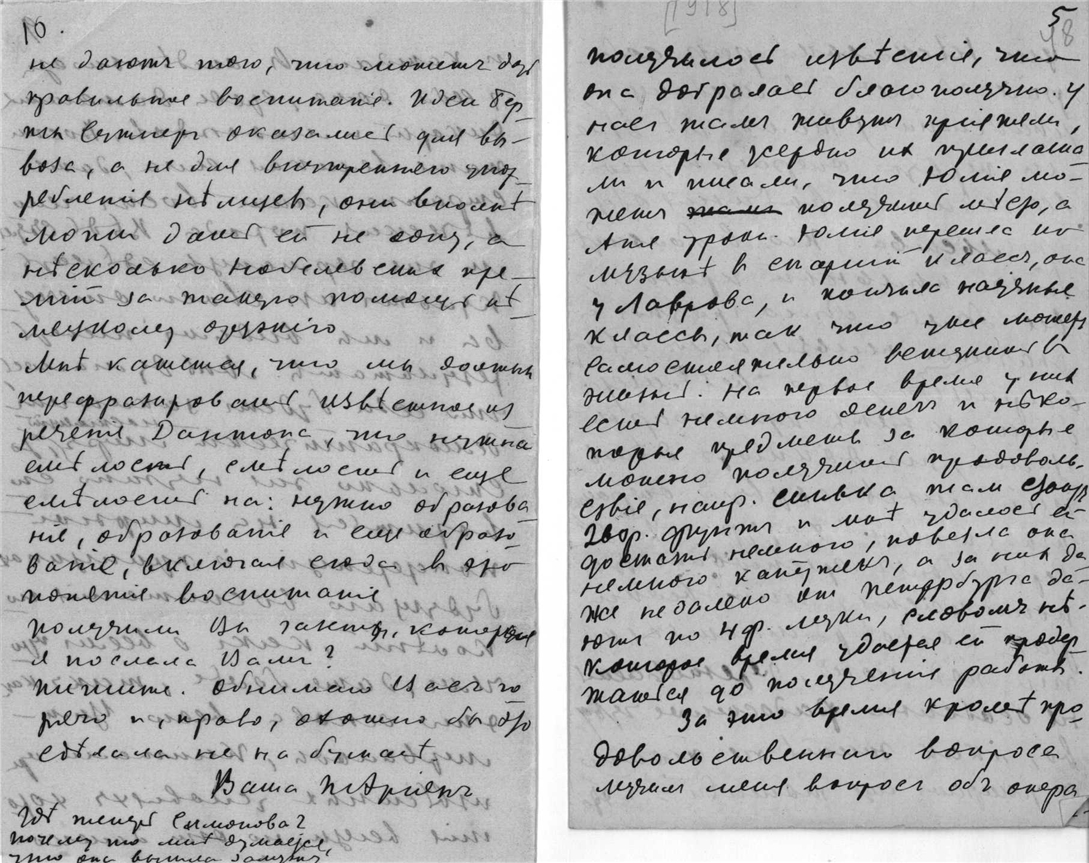 10.
не даютъ того, что можетъ дать
правильное воспитаніе. Идеи Бер-
ты Сутнер оказались для вы-
воза, а не для внутренняго упот-
ребленія нѣмцевъ, они вполнѣ
могли дать ей не одну, а
нѣсколько Нобелевских пре-
мій за такую помощь нѣ-
мецкому оружію
Мнѣ кажется, что мы должны
перефразировать извѣстное из
реченіе Дантона, что нужна
смѣлость, смѣлость и еще
смѣлость на: нужно образова
ніе, образованіе и еще образо
ваніе, включая сюда в это
понятіе воспитаніе
Получили Вы газеты, которыя
я послала Вамъ?
Пишите. Обнимаю Васъ го
рячо и, право, охотно бы это
сдѣлала не на бумагѣ
Ваша
Гдѣ теперь Симонова?
почему то мнѣ думается,
что она вышла замужъ,
[1918]
5
18
получилось извѣстіе, что
она добралась благополучно. У
насъ тамъ живутъ пріятели,
которые усердно их приглаша
ли и писали, что Юлія мо-
жетъ получить мѣсто, а
Аня уроки. Юлія перешла по
музыкѣ в старшій классъ, она
у Лаврова, и кончила научные
классы, так что уже можетъ
самостоятельно вступить в
жизнь. На первое время у них
есть немного денегъ и нѣко-
торые предметы за которые
можно получить продоволь-
ствіе, напр. спички там стоятъ
фунтъ и мнѣ удалось ей
достать немного, повезла она
немного катушекъ, а за них да
же недалеко от Петербурга да-
ютъ по 4 ф. муки, словомъ нѣ-
которое время удастся ей продер
жаться до полученія работы.
За это время кромѣ про-
довольственнаго вопроса
мучил меня вопрос объ опера